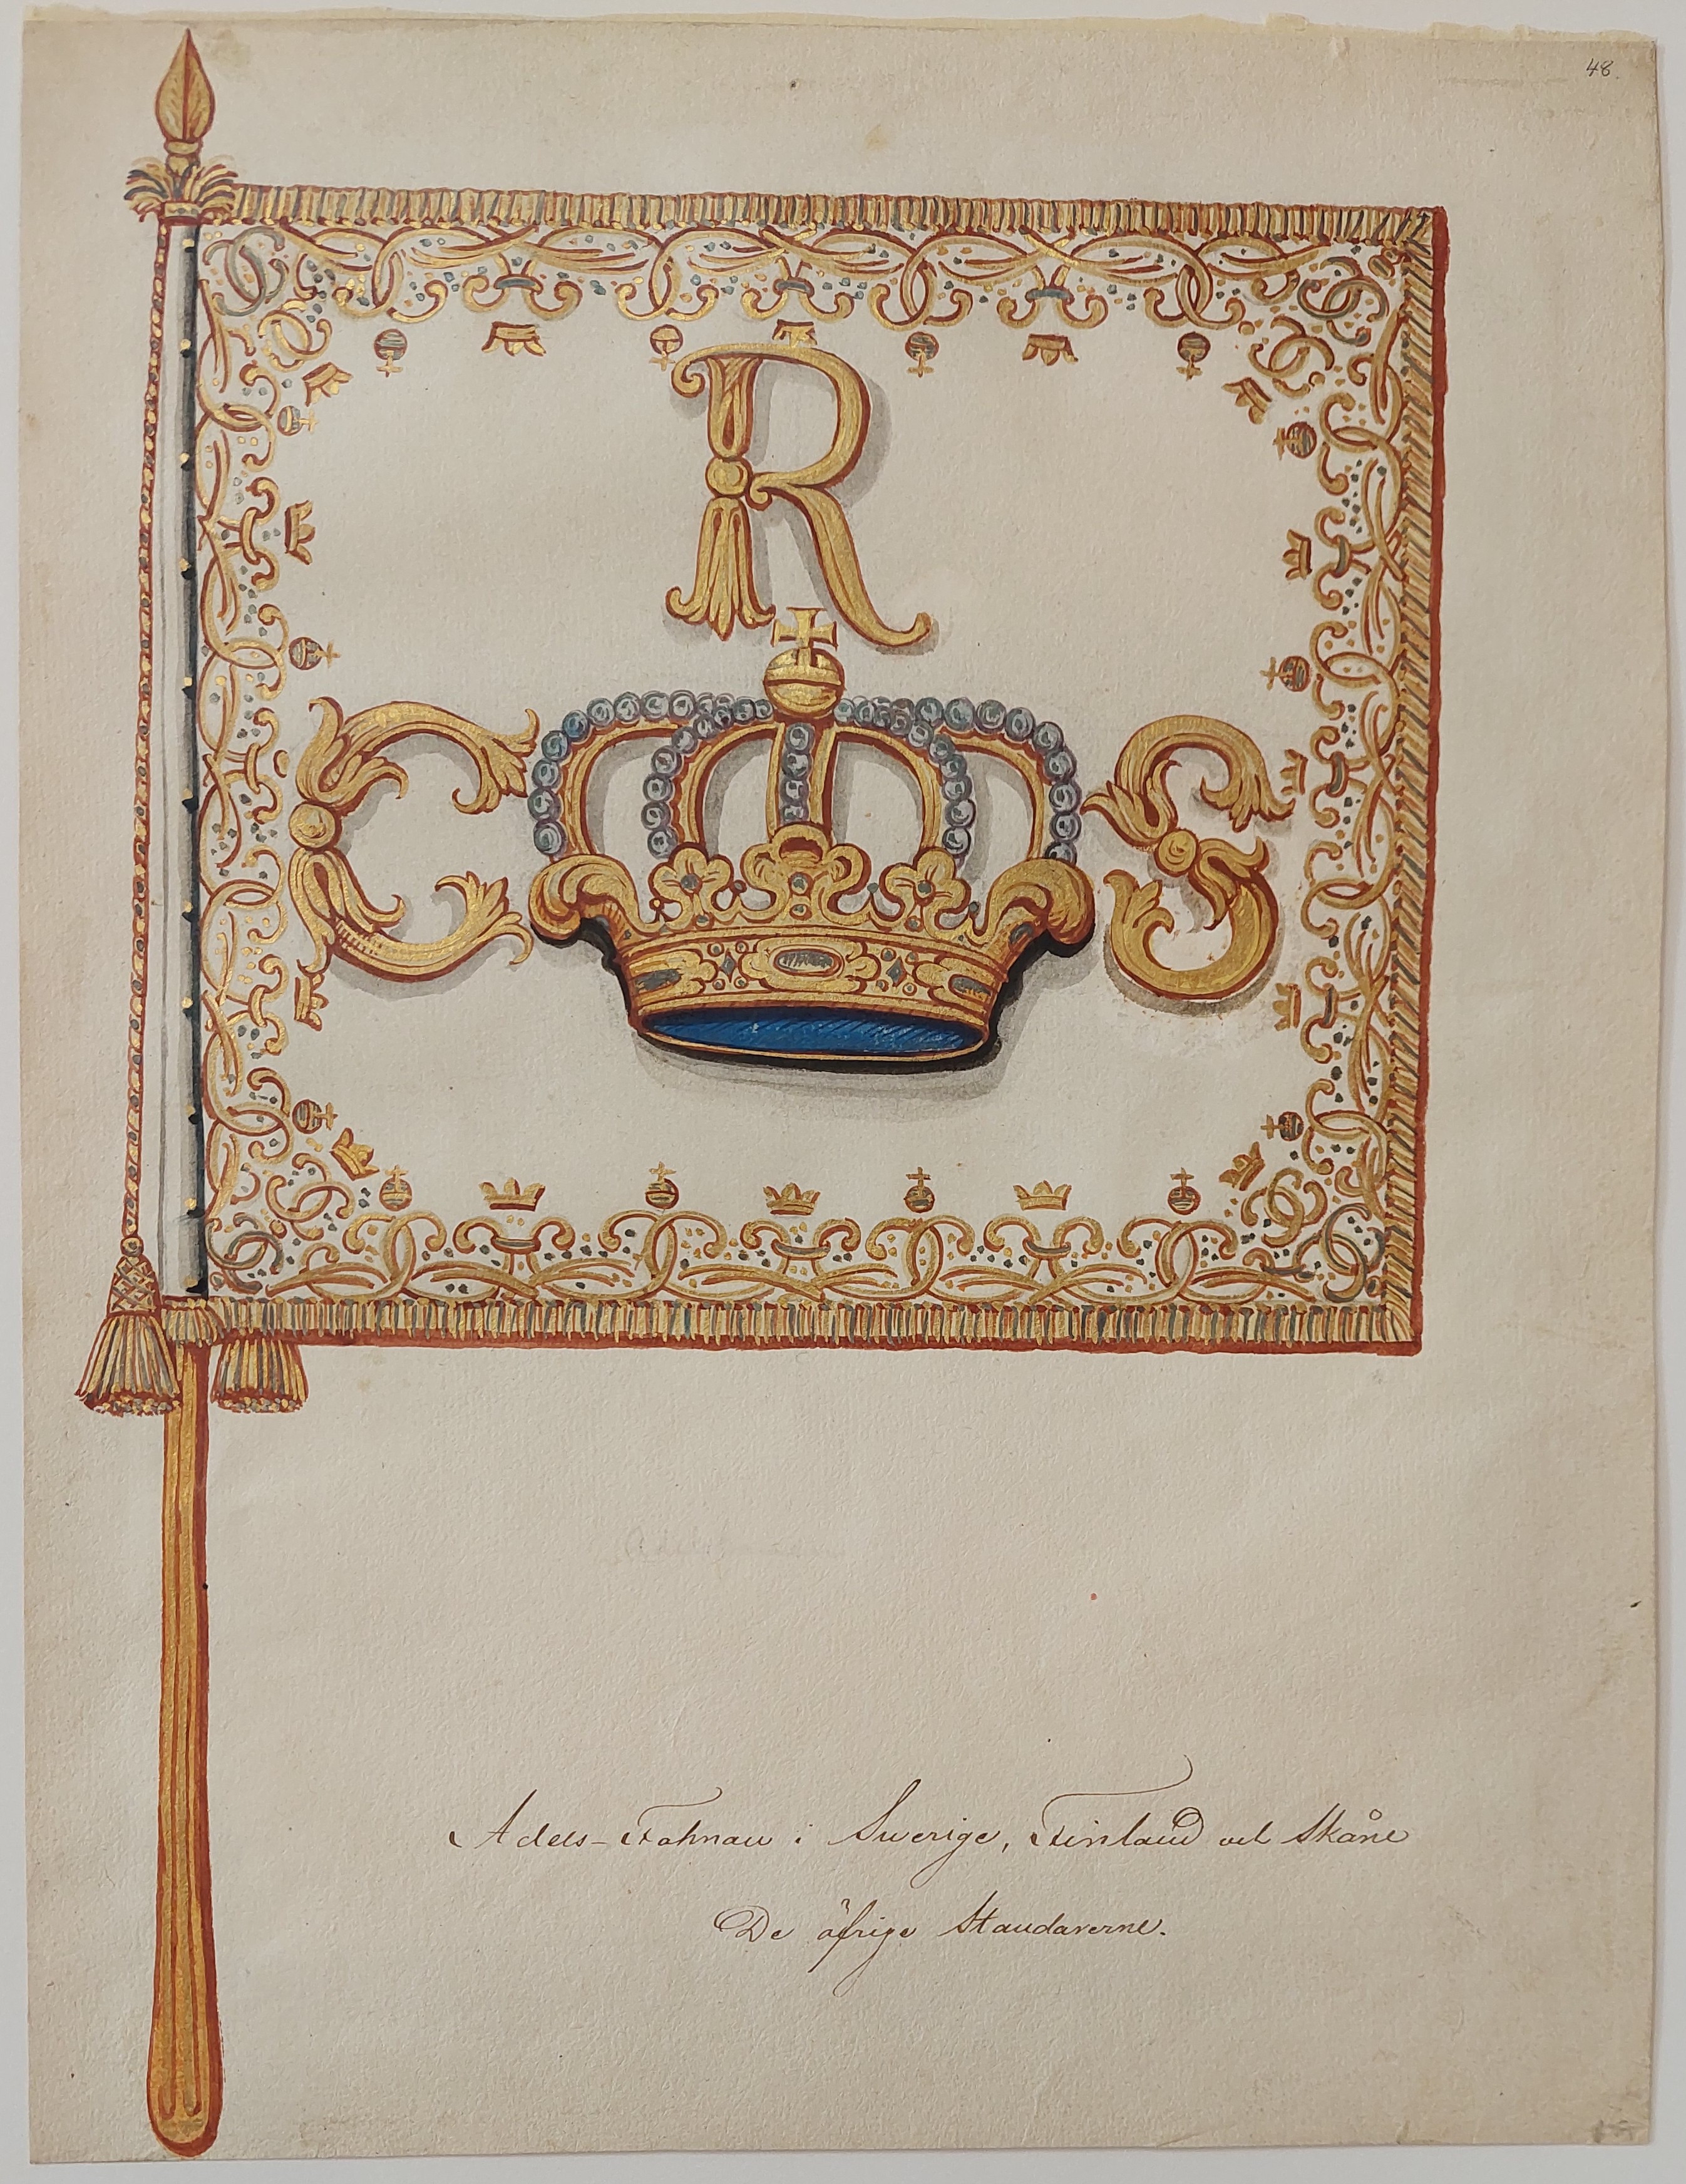 48.
R
C S
Adels-Fahnan i Swerige, Finland och Skåne
De öfrige Standarerne.